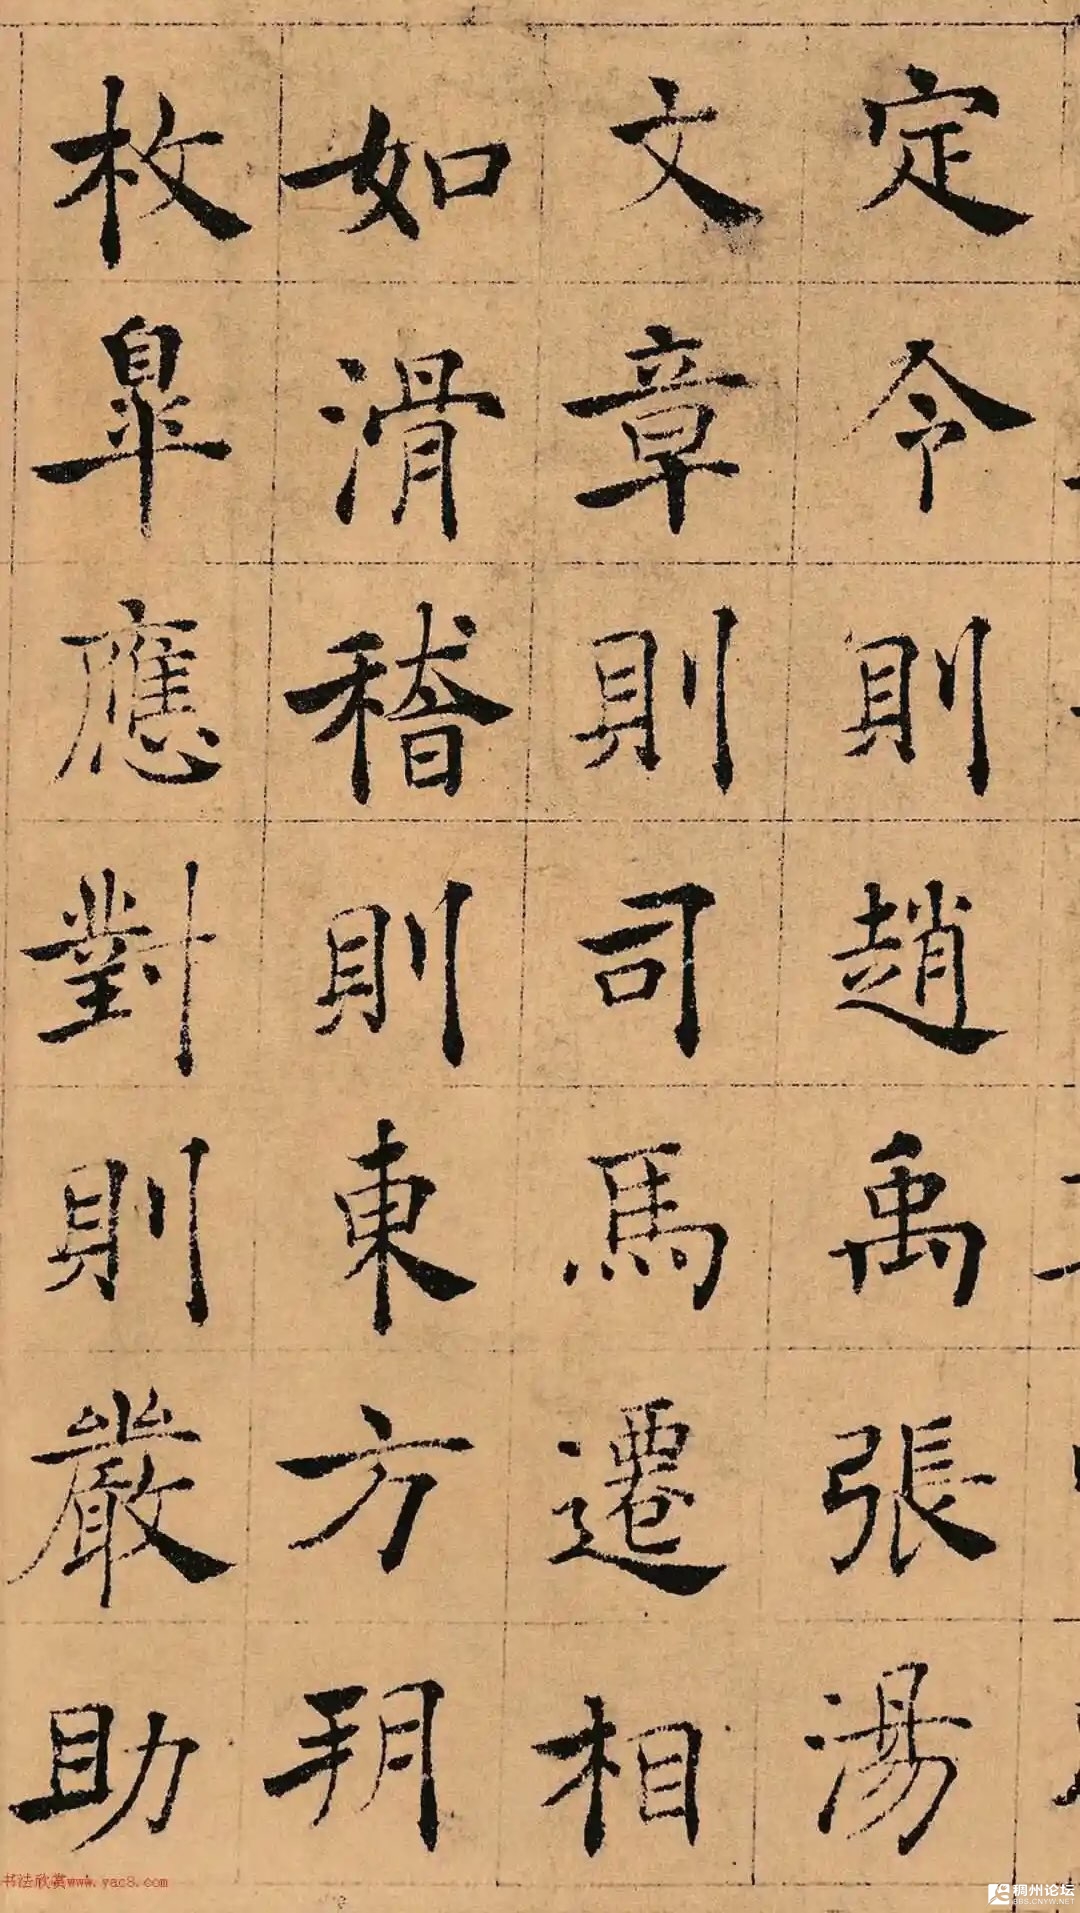 定令則趙禹張湯
文章則司馬遷相
如滑稽則東方朔
枚皋應對則嚴助
书法欣赏www.yac8.com
稠州论坛
BBS.CNYW.NET